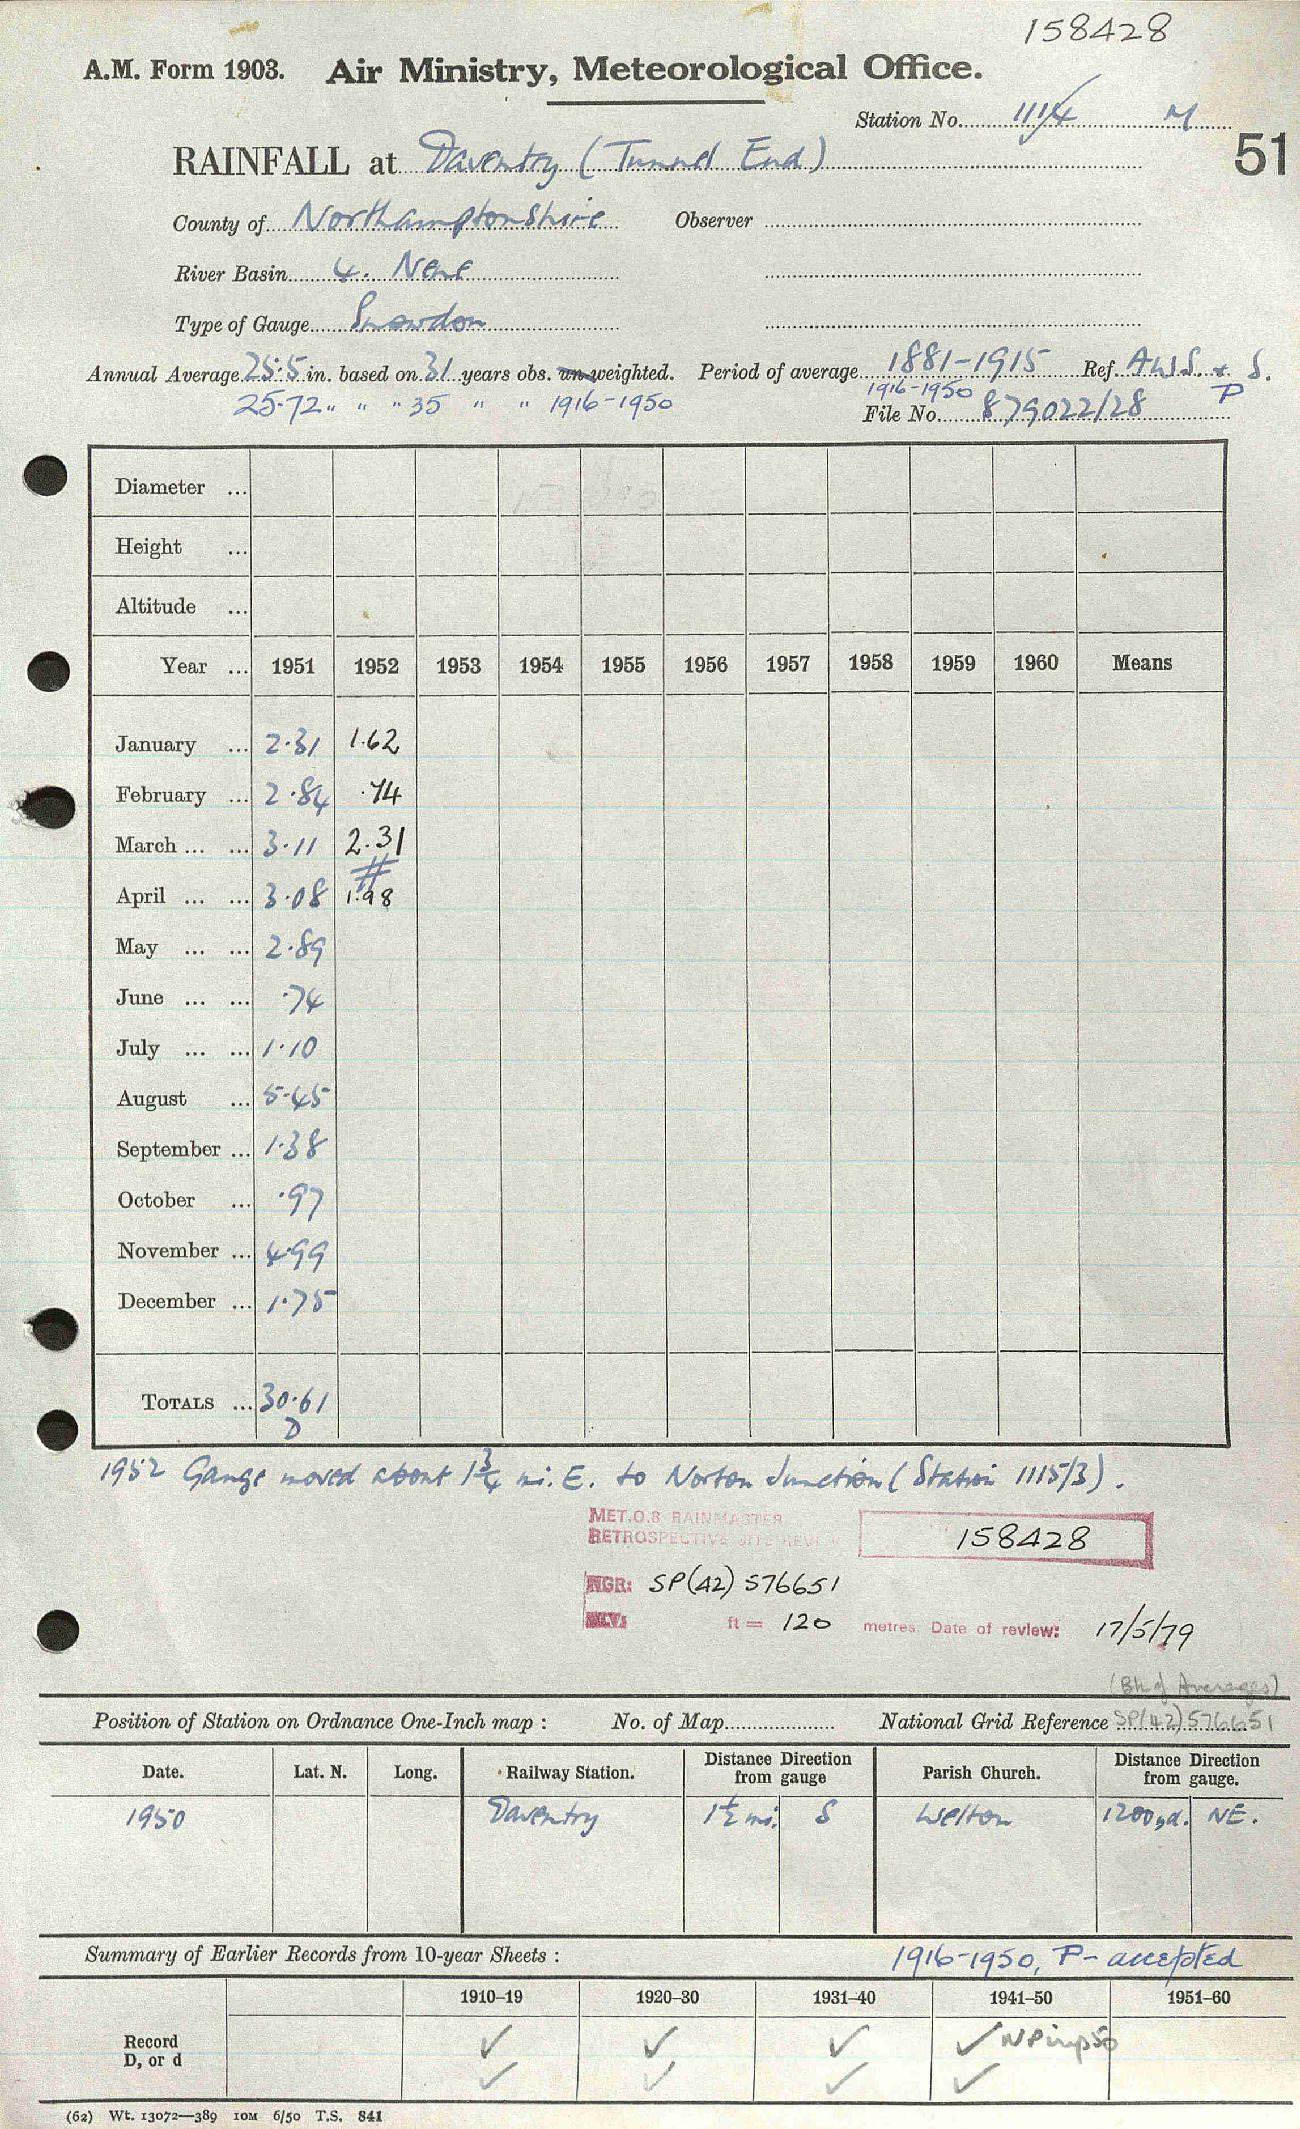 158428
A.M. Form 1903. Air Ministry, Meteorological Office.
Station No. 111/4 M
51
RAINFALL at Daventry (Tunnel End)
County of Northamptonshire Observer
River Basin 4. Nene
Type of Gauge Snowdon
Annual Average 25.5 in. based on 31 years obs. un-weighted. Period of average 1881-1915 Ref. A.W.S. & S.
25.72 " " " 35 " " 1916-1950 1916-1950 P
File No. 879022/28
Diameter ...
Height ...
Altitude ...
Year ... 1951 1952 1953 1954 1955 1956 1957 1958 1959 1960 Means
January ... 2.31 1.62
February ... 2.84 .74
March ... ... 3.11 2.31
April ... ... 3.08 # 1.98
May ... ... 2.89
June ... ... .74
July ... ... 1.10
August ... 5.45
September ... 1.38
October ... .97
November ... 4.99
December ... 1.75
TOTALS ... 30.61
D
1952 Gauge moved about 1¾ mi. E. to Norton Junction (Station 1115/3).
MET.O.8 RAINMASTER
RETROSPECTIVE SITE REVIEW 158428
NGR: SP(42) 576651
ELV: ft = 120 metres Date of review: 17/5/79
(Bk of Averages)
Position of Station on Ordnance One-Inch map : No. of Map National Grid Reference SP(42)576651
Date. Lat. N. Long. Railway Station. Distance Direction from gauge Parish Church. Distance Direction from gauge.
1950 Daventry 1½ mi. S Welton 1200 yd. NE.
Summary of Earlier Records from 10-year Sheets : 1916-1950, P- accepted
1910–19 1920–30 1931–40 1941–50 1951–60
Record ✓ ✓ ✓ ✓
D, or d ✓ ✓ ✓ ✓
(62) Wt. 13072—389 10M 6/50 T.S. 841